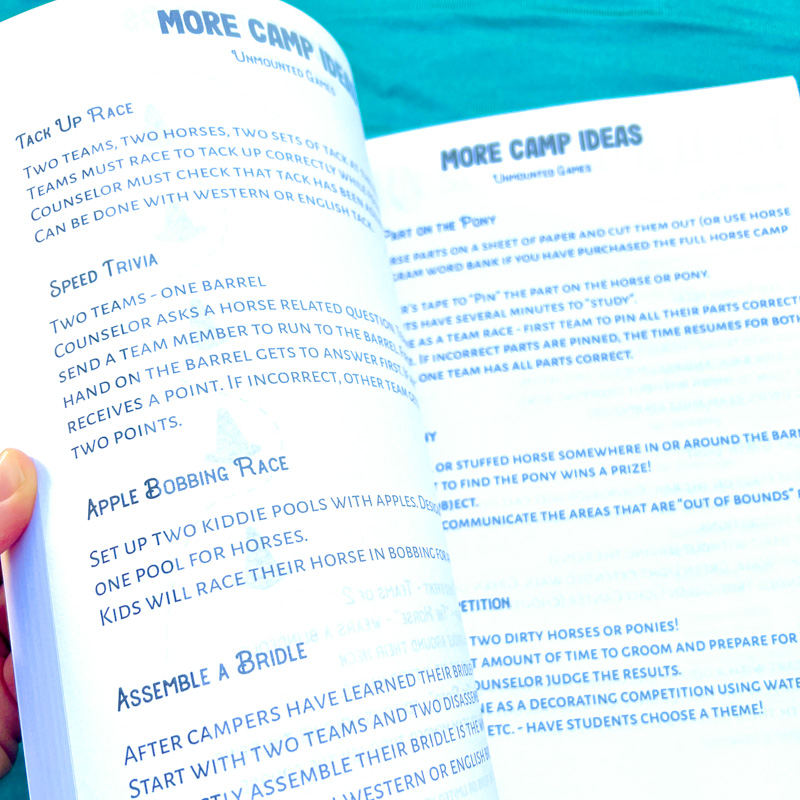 MORE CAMP IDEAS
UNMOUNTED GAMES
TACK UP RACE
TWO TEAMS, TWO HORSES, TWO SETS OF TACK
TEAMS MUST RACE TO TACK UP CORRECTLY
COUNSELOR MUST CHECK THAT TACK HAS BEEN
CAN BE DONE WITH WESTERN OR ENGLISH TACK.
SPEED TRIVIA
TWO TEAMS - ONE BARREL
COUNSELOR ASKS A HORSE RELATED QUESTION
SEND A TEAM MEMBER TO RUN TO THE BARREL
HAND ON THE BARREL GETS TO ANSWER FIRST.
RECEIVES A POINT. IF INCORRECT, OTHER TEAM
TWO POINTS.
APPLE BOBBING RACE
SET UP TWO KIDDIE POOLS WITH APPLES.
ONE POOL FOR HORSES.
KIDS WILL RACE THEIR HORSE IN BOBBING
ASSEMBLE A BRIDLE
AFTER CAMPERS HAVE LEARNED THEIR
START WITH TWO TEAMS AND TWO
ASSEMBLE THEIR BRIDLE IS THE
WESTERN OR ENGLISH
MORE CAMP IDEAS
UNMOUNTED GAMES
PART ON THE PONY
PARTS ON A SHEET OF PAPER AND CUT THEM OUT (OR USE HORSE
WORD BANK IF YOU HAVE PURCHASED THE FULL HORSE CAMP
TAPE TO "PIN" THE PART ON THE HORSE OR PONY.
HAVE SEVERAL MINUTES TO "STUDY".
AS A TEAM RACE - FIRST TEAM TO PIN ALL THEIR PARTS
IF INCORRECT PARTS ARE PINNED, THE TIME RESUMES FOR BOTH
ONE TEAM HAS ALL PARTS CORRECT.
OR STUFFED HORSE SOMEWHERE IN OR AROUND THE
TO FIND THE PONY WINS A PRIZE!
COMMUNICATE THE AREAS THAT ARE "OUT OF BOUNDS"
TWO DIRTY HORSES OR PONIES!
AMOUNT OF TIME TO GROOM AND PREPARE FOR
JUDGE THE RESULTS.
AS A DECORATING COMPETITION USING
ETC. - HAVE STUDENTS CHOOSE A THEME!